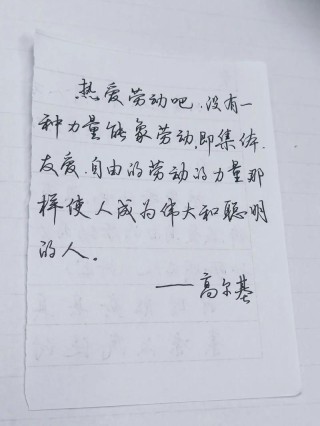 热爱劳动吧.没有一
种力量能象劳动,即集体.
友爱.自由的劳动的力量那
样使人成为伟大和聪明
的人。
——高尔基